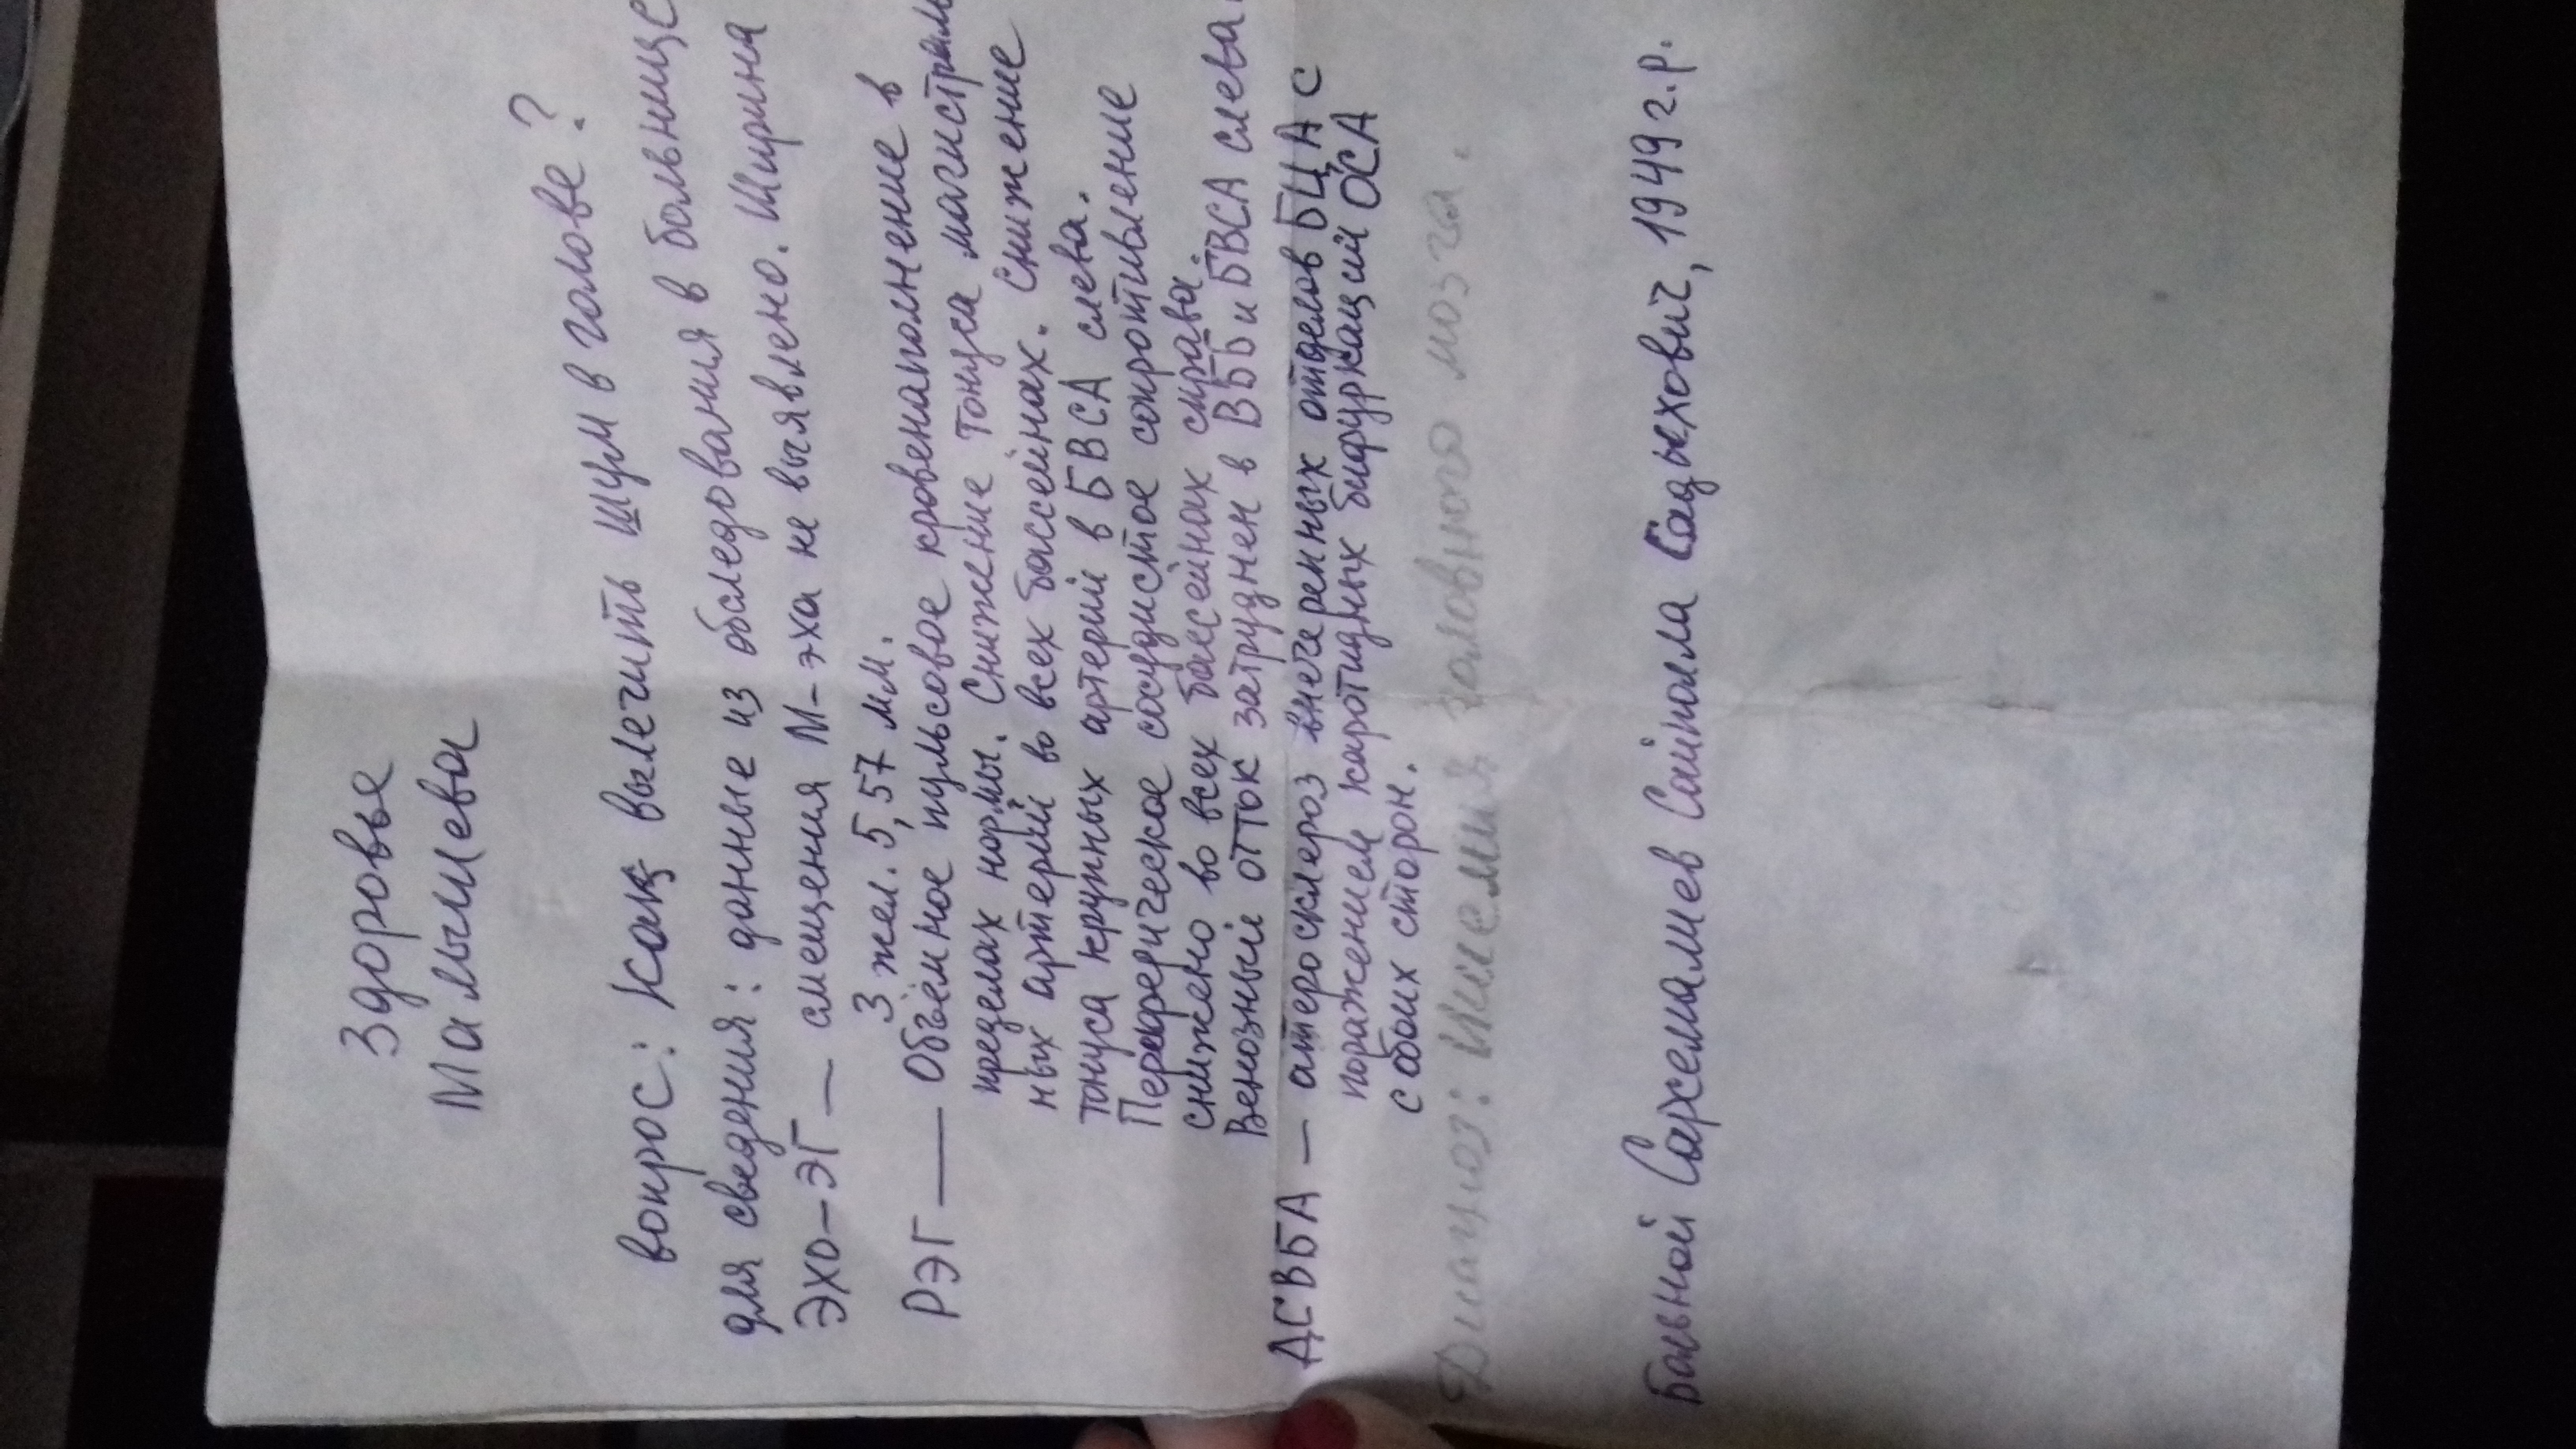 Здоровье
Малышева
вопрос: Как вылечить шум в голове?
для сведения: данные из обследования в больнице
ЭХО-ЭГ — смещения М-эха не выявлено. Ширина
3 жел. 5,57 мм.
РЭГ — Объёмное пульсовое кровенаполнение в
пределах нормы. Снижение тонуса магистраль
ных артерий во всех бассейнах. Снижение
тонуса крупных артерий в БВСА слева.
Периферическое сосудистое сопротивление
снижено во всех бассейнах справа.
Венозный отток затруднен в ВББ и БВСА слева.
ДСВБА — атеросклероз внечеренных отделов БЦА с
поражением каротидных бифуркаций ОСА
с обоих сторон.
Диагноз: Ишемия головного мозга.
Больной Сарсемалиев Сайполла Садыехович, 1949 г.р.